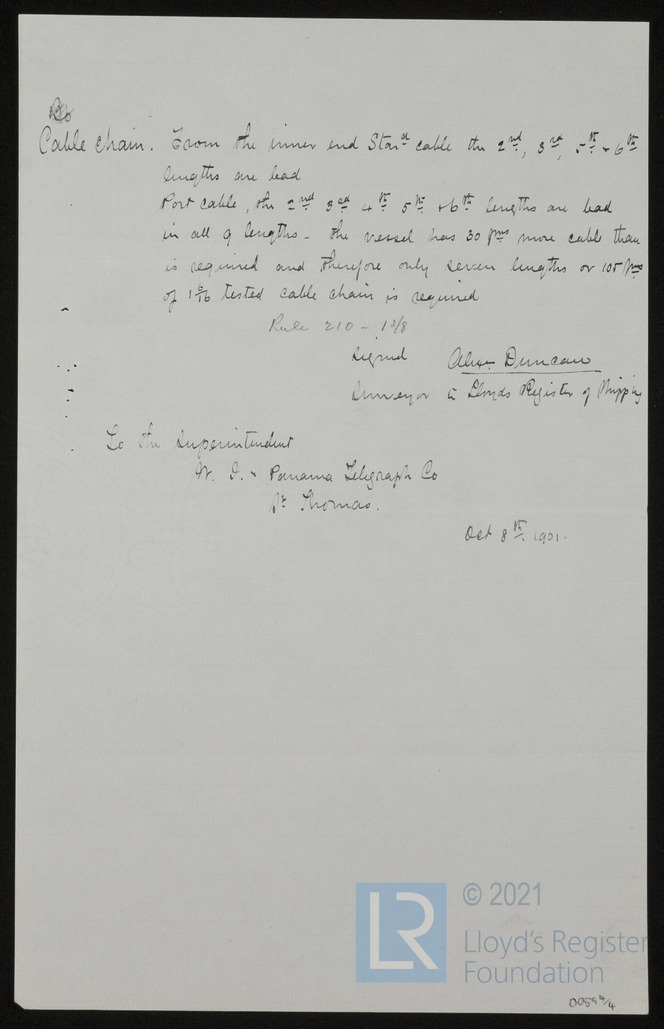 Cable chain. From the inner end Star^d cable the 2^nd, 3^rd, 5^th + 6^th
lengths are bad
Port cable, the 2^nd 3^rd 4^th 5^th + 6^th lengths are bad
in all 9 lengths - the vessel has 30 fms more cable than
is required and therefore only seven lengths or 105 fms
of 1 6/16 tested cable chain is required
Rule 210 - 1 3/8
signed Alex Duncan
Surveyor to Lloyds Register of Shipping
To the Superintendent
W. I. & Panama Telegraph Co
St Thomas.
Oct 8^th 1901.
LR
© 2021
Lloyd's Register
Foundation